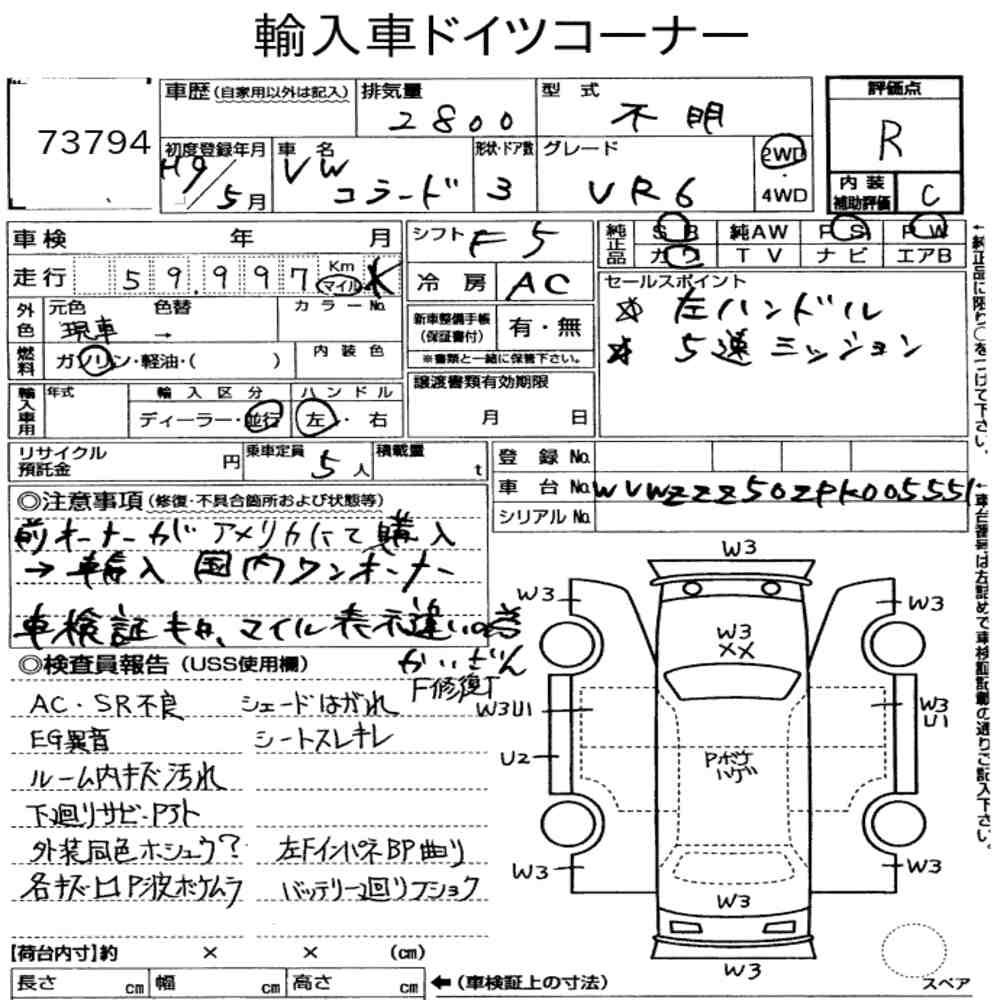 輸入車ドイツコーナー
73794
車歴(自家用以外は記入) 排気量 2800 型式 不明
初度登録年月 H9/5月 車名 VW コラード 形状・ドア数 3 グレード VR6 2WD ・ 4WD
評価点 R
内装補助評価 C
車検 年 月 シフト F5
走行 59,997 Km マイル K 冷房 AC
純正品 SR 純AW PS PW
カワ TV ナビ エアB
外色 元色 現車 色替 → カラーNo.
新車整備手帳(保証書付) 有・無
※書類と一緒に保管下さい。
セールスポイント
☆ 左ハンドル
☆ 5速ミッション
燃料 ガソリン・軽油・( ) 内装色
輸入車用 年式 輸入区分 ディーラー・並行 ハンドル 左・右
譲渡書類有効期限 月 日
リサイクル預託金 円 乗車定員 5人 積載量 t
登録No.
車台No. WVWZZZ50ZPK005551
シリアルNo.
←純正品に限り○をつけて下さい。
←車台番号は左詰めで車検証記載の通りご記入下さい。
◎注意事項(修復・不具合箇所および状態等)
前オーナーがアメリカにて購入
→ 輸入 国内ワンオーナー
車検証キロ、マイル表示違いの為
かいざん
◎検査員報告(USS使用欄)
F修復T
AC・SR不良 シェードはがれ
EG異音 シートスレキレ
ルーム内キズ汚れ
下廻りサビ・P3ト
外装同色ホシュウ? 左FインパネBP曲り
各キズ凹P波ボケムラ バッテリー2回リフショク
W3
W3
W3
W3
XX
W3U1
W3
U1
U2
Pボケ
ハゲ
W3
W3
W3
W3
【荷台内寸】約 × × (cm)
長さ cm 幅 cm 高さ cm
←(車検証上の寸法)
スペア